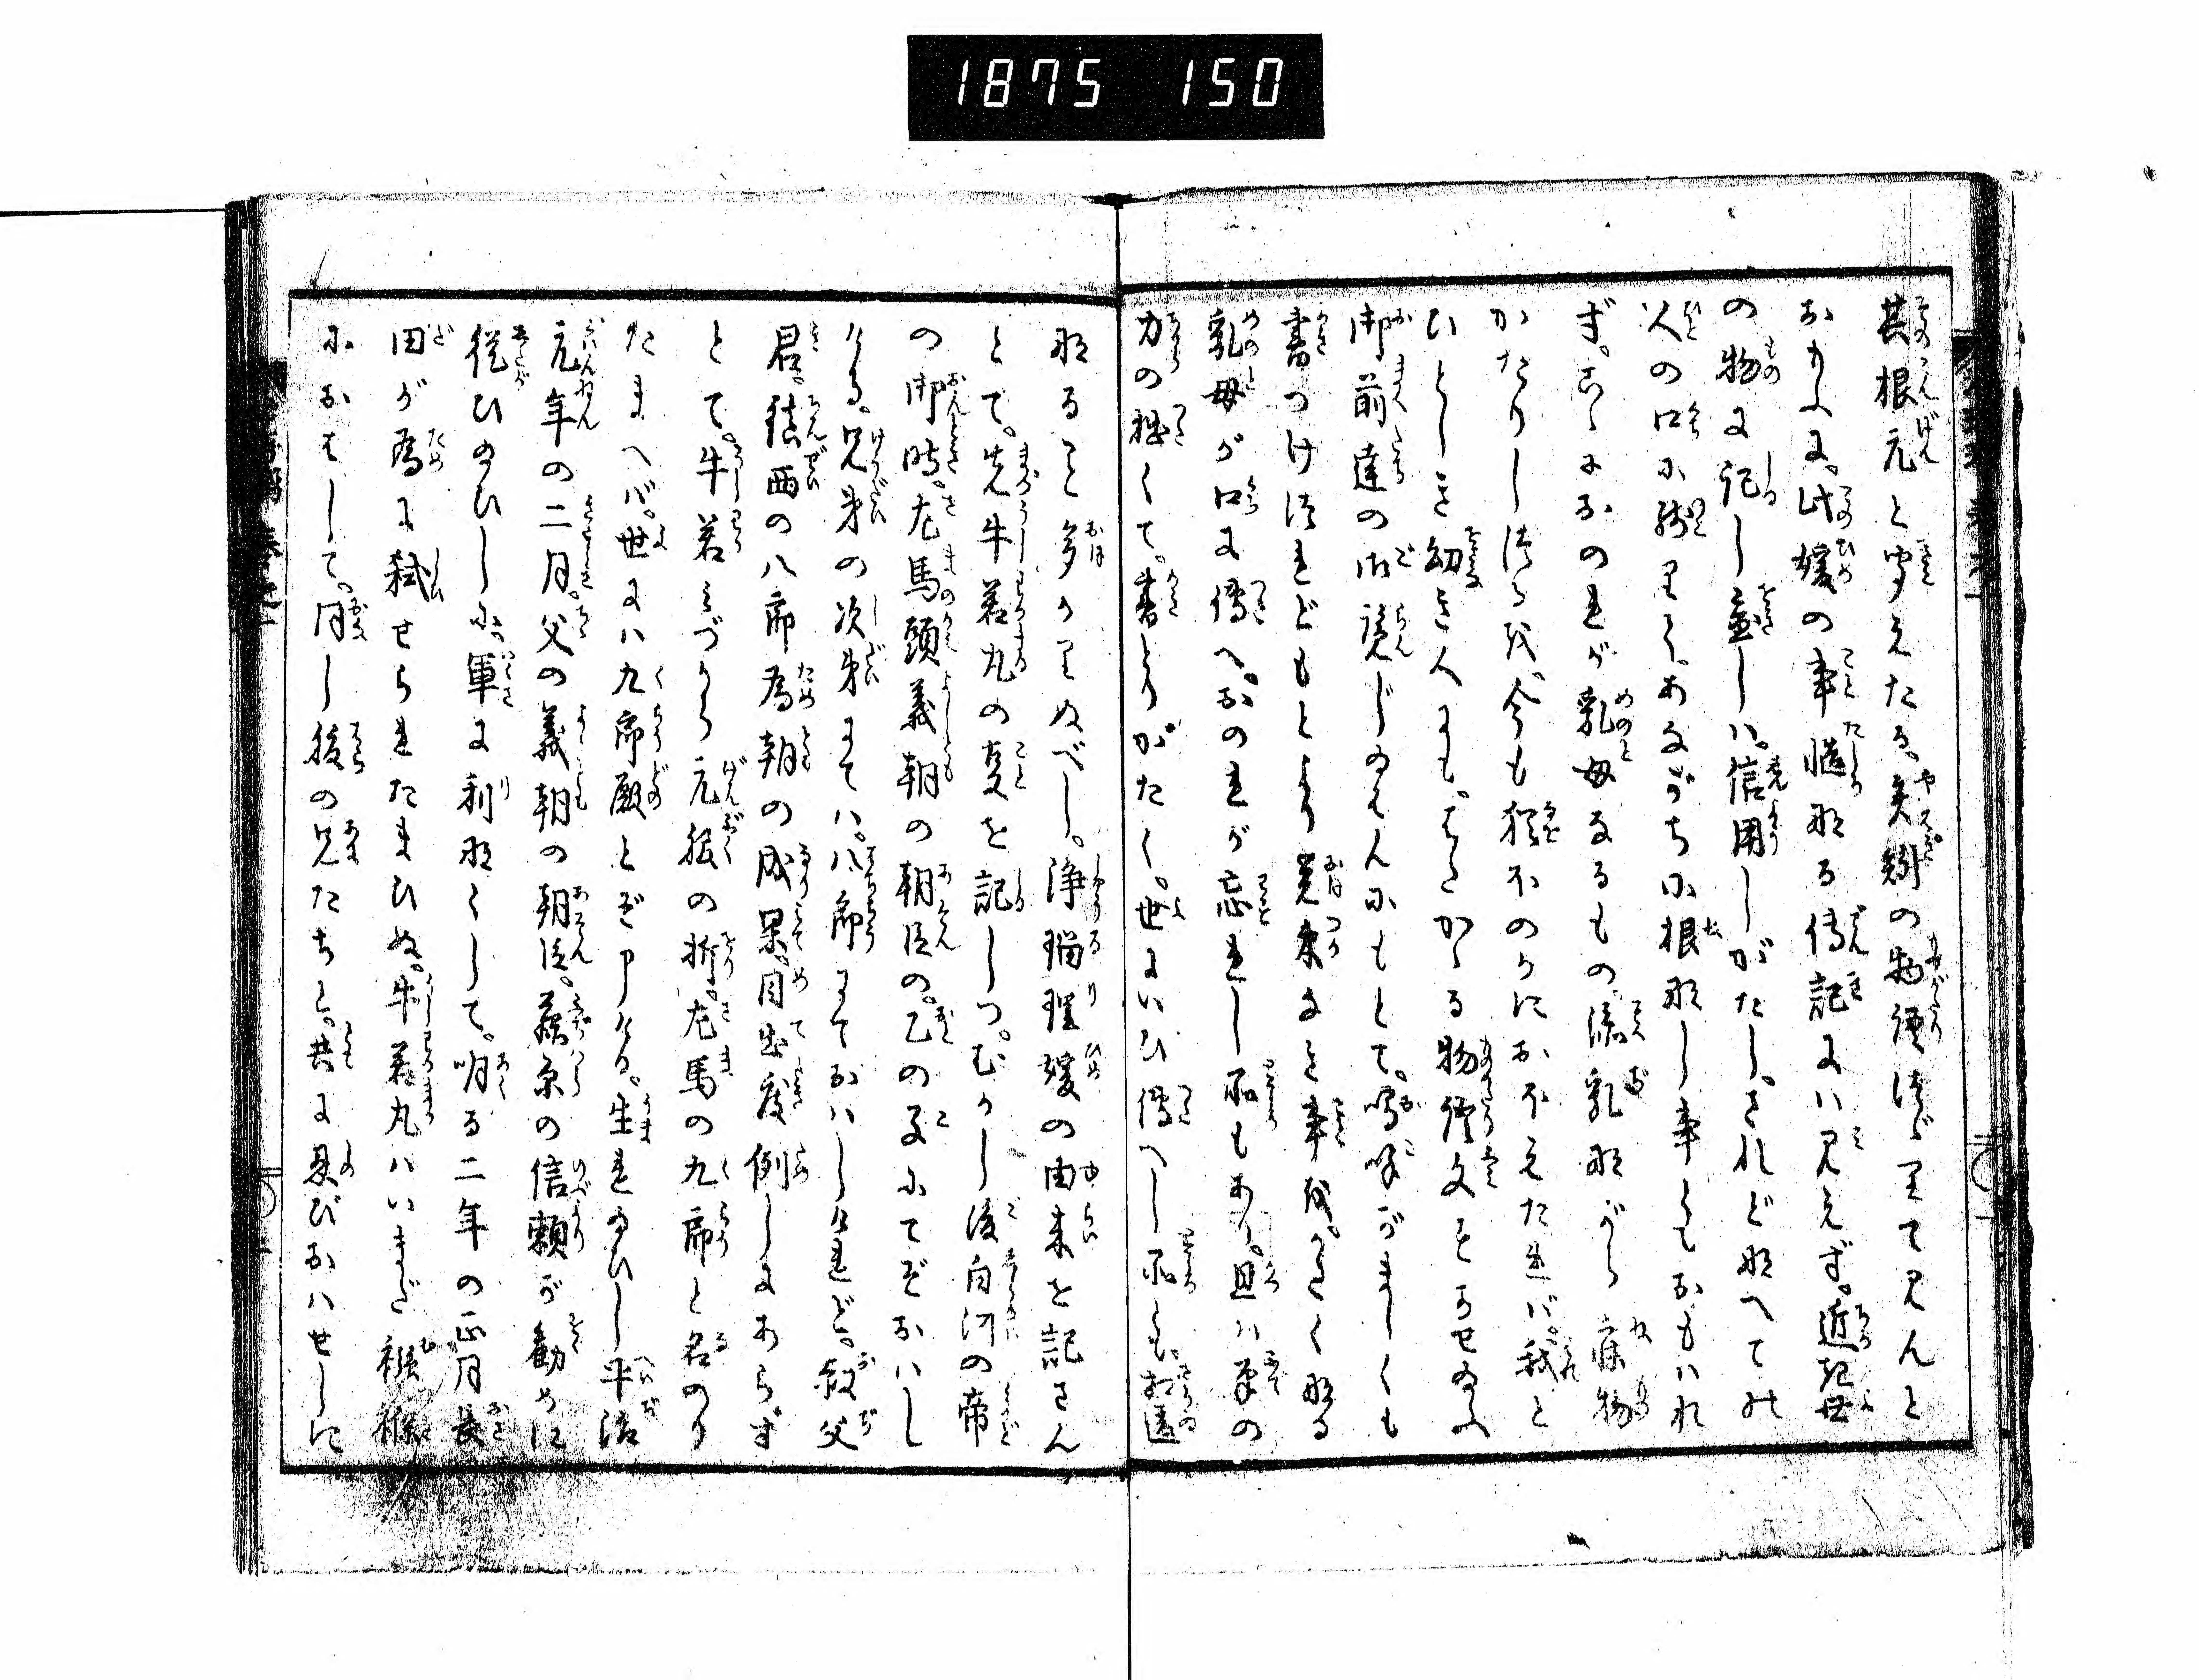 1875 150
其根元と聞えたる、矢矧の物語つゞりて見んと
おもふに。此媛の事慥なる傳記には見えず。近き世
の物に記し置しは。信用しがたし。されど なへての
人の口に残りて、あながちに根なし事ともおもはれ
ず。こゝにおのれが乳母なるもの、添乳ながら寐物
かたりしつるを、今も猶ほのかにおぼえたれバ。我と
ひとしき幼き人にも、はたかゝる物
御前達の御覧じ給はんにもとて。嗚呼がましくも
書つけつれどもとより覚束なき事を。
乳母が口に傳へ。おのれが忘れし所もあり。且ハ筆の
力の拙くて。書とりがたく。世にいひ傳へし所とも。相違
なること多かりぬべし。浄瑠璃媛の由来を記さん
とて。先牛若丸の事を記しつ。むかし後白河の帝
の御時。左馬頭義朝の朝臣の。乙の子にてぞおハし
ける。兄弟の次第にてハ。八郎にておハしけれど。叔父
君。鎮西の八郎為朝の成果。目出度例しにあらず
とて。牛若みづから元服の折。左馬の九郎と名のり
たまへバ。世にハ九郎殿とぞ申ける。生れ給ひし平治
元年の二月。父の義朝の朝臣。藤原の信頼が勧めに
従ひ給ひしに。軍に利なくして。明る二年の正月長
田が為に弑せられたまひぬ。牛若丸ハいまだ襁褓
におはして。同し後の兄たちと。共に忍びおハせしに